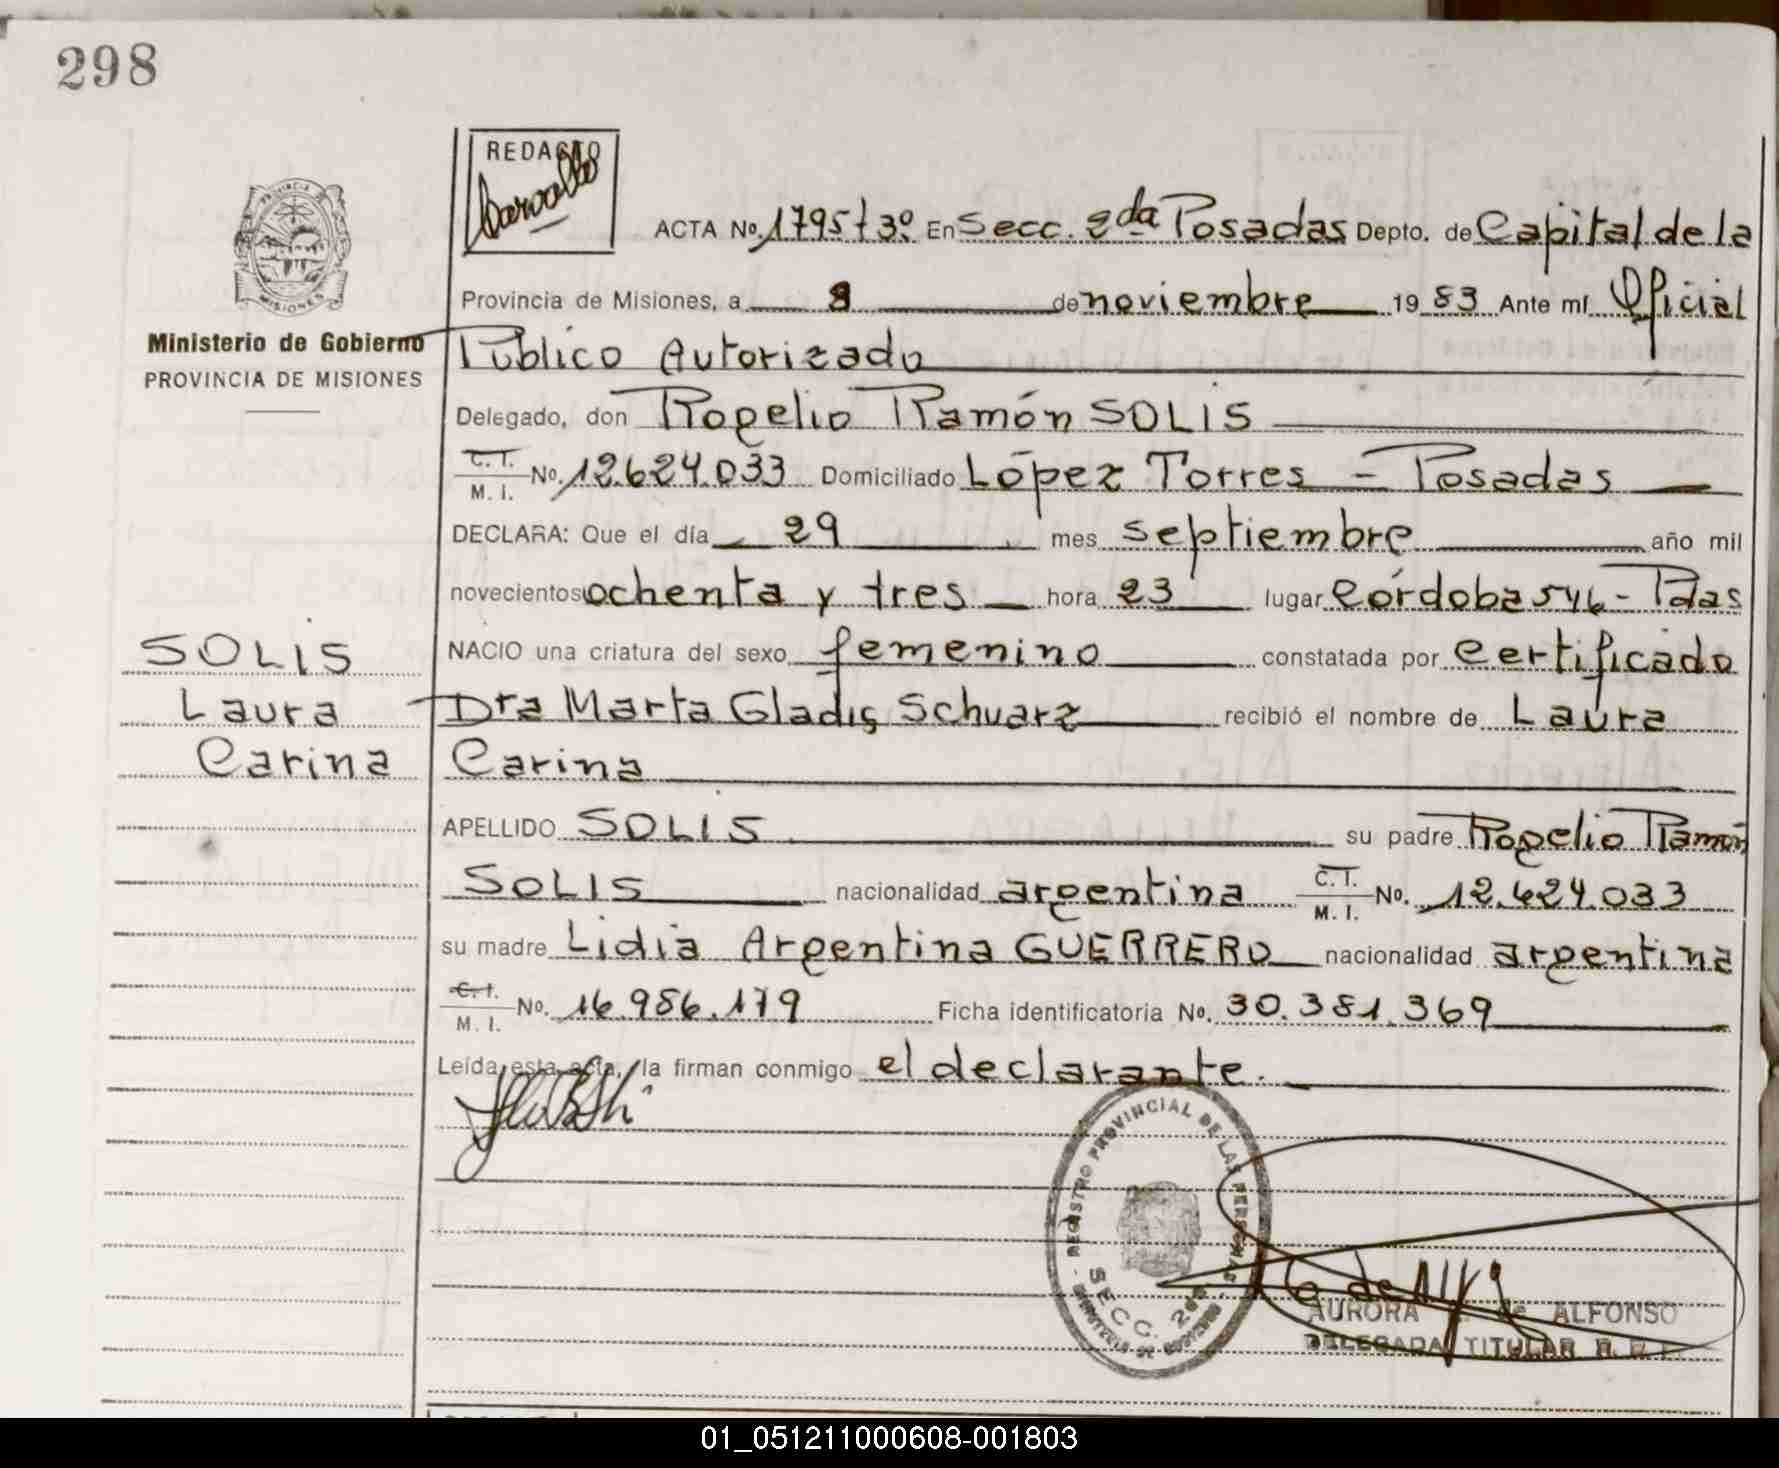 298
REDACTO
Carvallo
ACTA No. 1795 t 3º En Secc. 2da Posadas Depto. de Capital de la
PROVINCIA DE MISIONES
Provincia de Misiones, a 8 de noviembre 1983 Ante mí Oficial
Ministerio de Gobierno
PROVINCIA DE MISIONES
Público Autorizado
Delegado, don Rogelio Ramón SOLIS
C.I.
M. I. No. 12.624.033 Domiciliado López Torres - Posadas
DECLARA: Que el día 29 mes septiembre año mil
novecientos ochenta y tres hora 23 lugar Córdoba 546 - Pdas
SOLIS
Laura
Carina
NACIO una criatura del sexo femenino constatada por certificado
Dra Marta Gladis Schuarz recibió el nombre de Laura
Carina
APELLIDO SOLIS su padre Rogelio Ramón
SOLIS nacionalidad argentina C.I.
M. I. No. 12.624.033
su madre Lidia Argentina GUERRERO nacionalidad argentina
C.I.
M. I. No. 16.986.179 Ficha identificatoria No. 30.381.369
Leída esta acta, la firman conmigo el declarante.
REGISTRO PROVINCIAL DE LAS PERSONAS
SECC. 2da
AURORA de ALFONSO
DELEGADA TITULAR
01_051211000608-001803